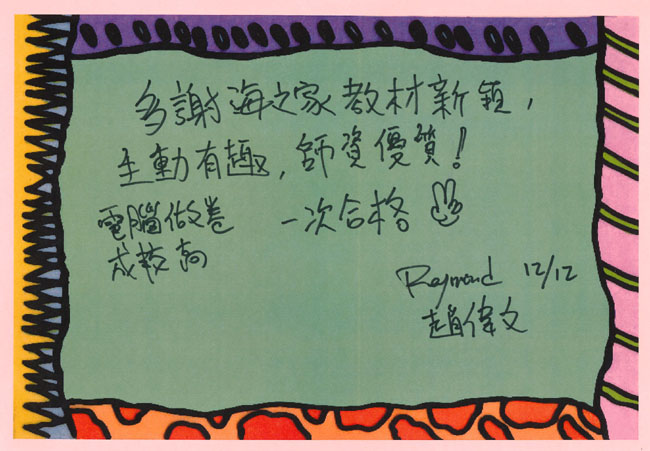 多謝海之家教材新穎,
生動有趣,師資優質!
電腦做卷 一次合格
成較高
Raymond 12/12
趙偉文